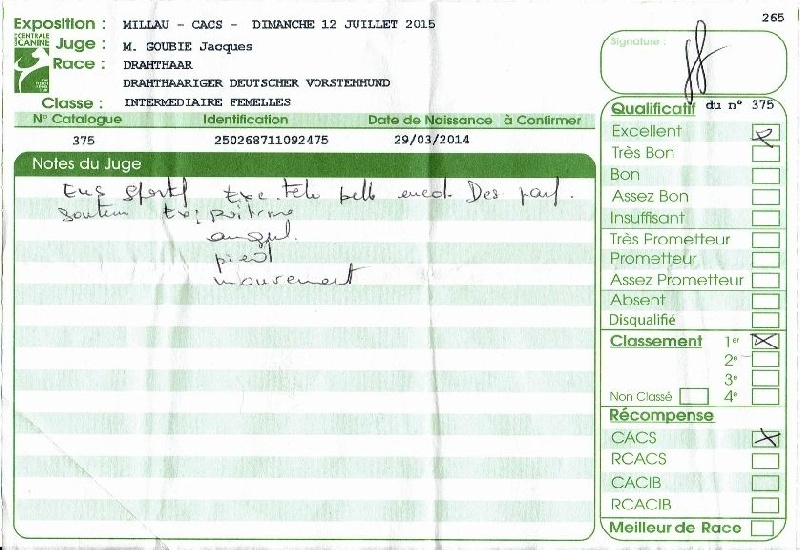 265
Exposition : MILLAU - CACS - DIMANCHE 12 JUILLET 2015
CENTRALE CANINE
Juge : M. GOUBIE Jacques
Race : DRAHTHAAR
DRAHTHAARIGER DEUTSCHER VORSTEHHUND
Classe : INTERMEDIAIRE FEMELLES
N° Catalogue Identification Date de Naissance à Confirmer
375 250268711092475 29/03/2014
Notes du Juge
Ens sportif Exc. Tete belle encol. Dos parf.
soutenu poitrine
angul.
pied
mouvement
Signature :
Qualificatif du n° 375
Excellent
Très Bon
Bon
Assez Bon
Insuffisant
Très Prometteur
Prometteur
Assez Prometteur
Absent
Disqualifié
Classement 1er
2e
3e
Non Classé 4e
Récompense
CACS
RCACS
CACIB
RCACIB
Meilleur de Race